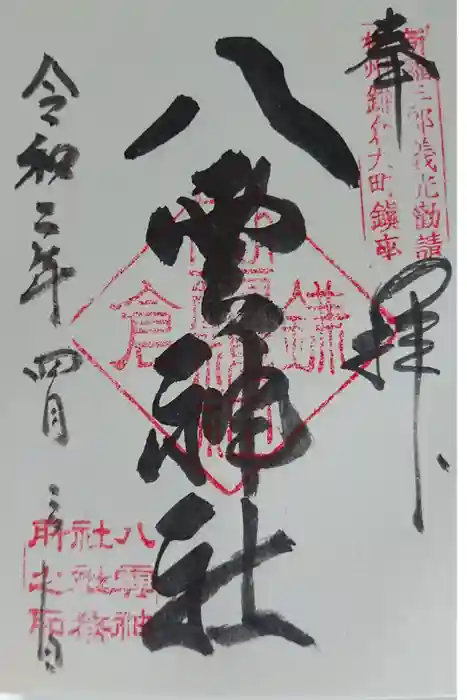 奉拝
新羅三郎義光勧請
相州鎌倉大町鎮座
八雲神社
鎌倉
八雲神
社社務
所之印
令和二年四月